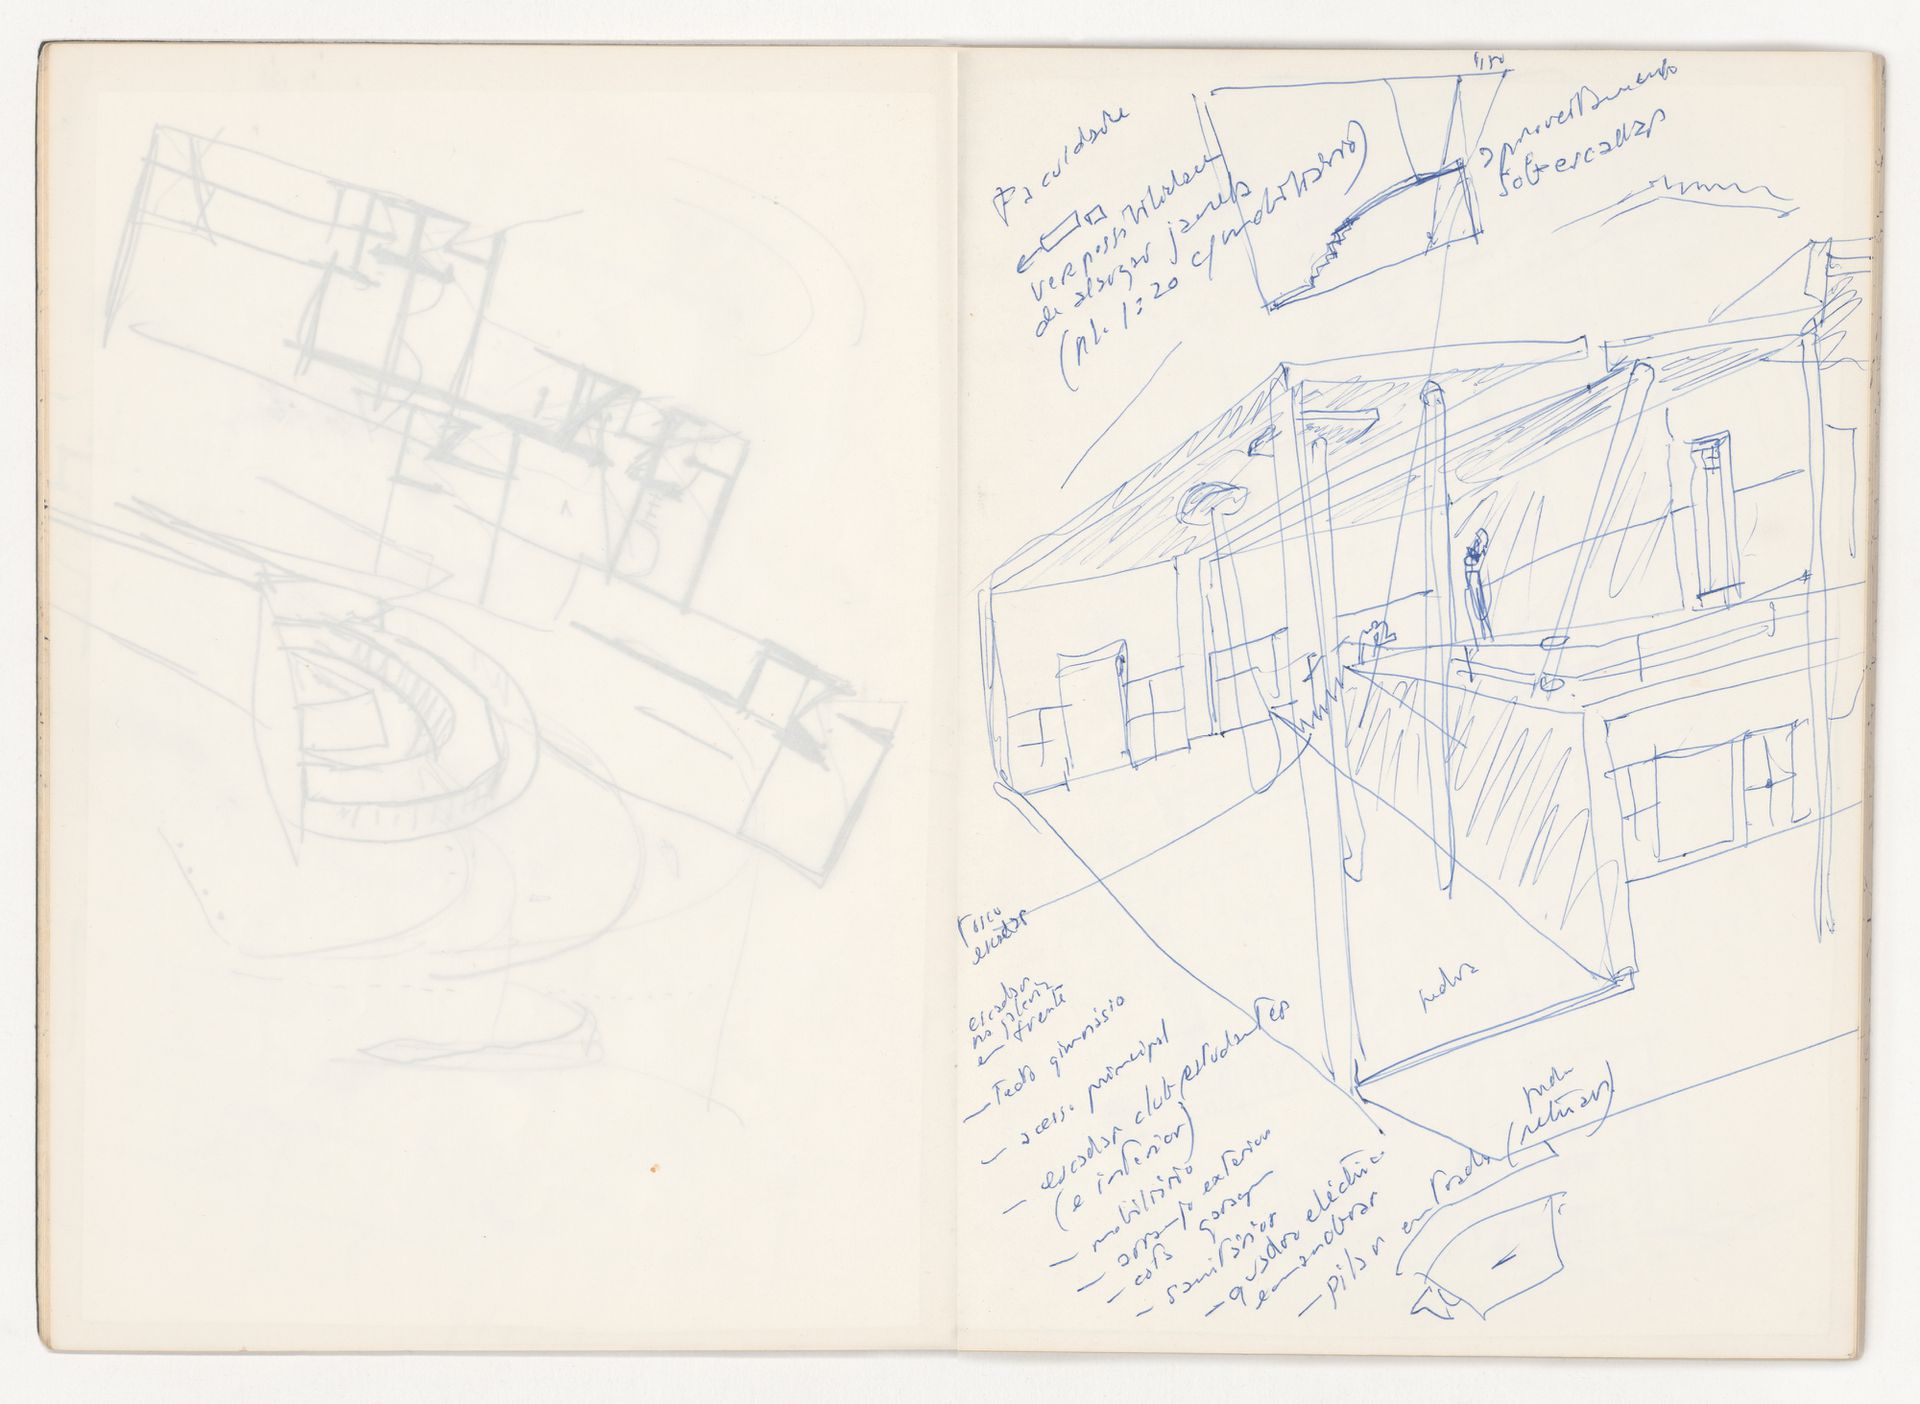 Faculdade
ver possibilidade
de alargar janela
(pl. 1:20 c/mobiliário)
aproveitamento
sob escadas
escadas
escadas
na galeria
em frente
— Tecto gimnásio
— acesso principal
— escadas club estudantes
(e interior)
— mobiliário
— arranjo exterior
— cota garagem
— sanitários
— quadro eléctrico
— pilar entrada
pedra
(retirar)
pedra